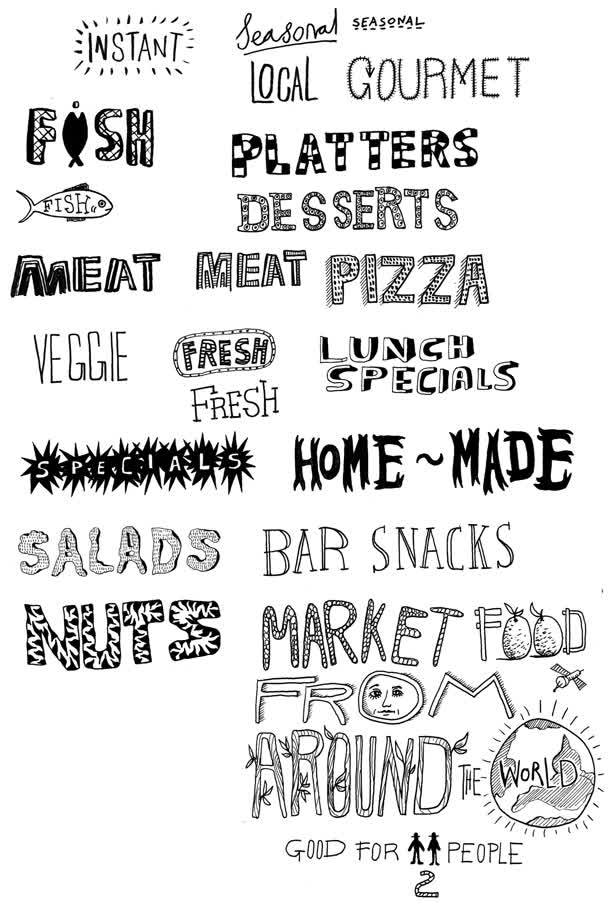 INSTANT
Seasonal
SEASONAL
LOCAL
GOURMET
FISH
PLATTERS
FISH
DESSERTS
MEAT
MEAT
PIZZA
VEGGIE
FRESH
FRESH
LUNCH
SPECIALS
SPECIALS
HOME ~ MADE
SALADS
BAR SNACKS
NUTS
MARKET FOOD
FROM
AROUND
THE WORLD
GOOD FOR PEOPLE
2